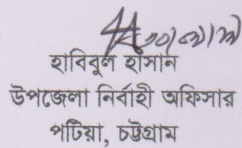 হাবিবুল হাসান
উপজেলা নির্বাহী অফিসার
পটিয়া, চট্টগ্রাম